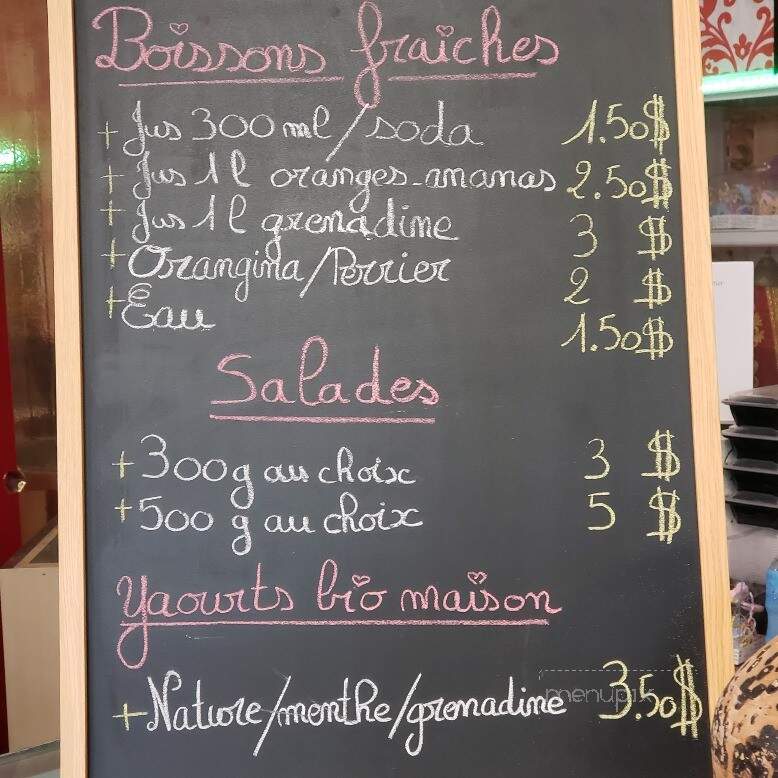 Boissons fraiches
+ Jus 300 ml/soda 1.50$
+ Jus 1 l oranges-ananas 2.50$
+ Jus 1 l grenadine 3 $
+ Orangina/Perrier 2 $
+ Eau 1.50$
Salades
+ 300g au choix 3 $
+ 500 g au choix 5 $
Yaourts bio maison
menupix
+ Nature/menthe/grenadine 3.50$